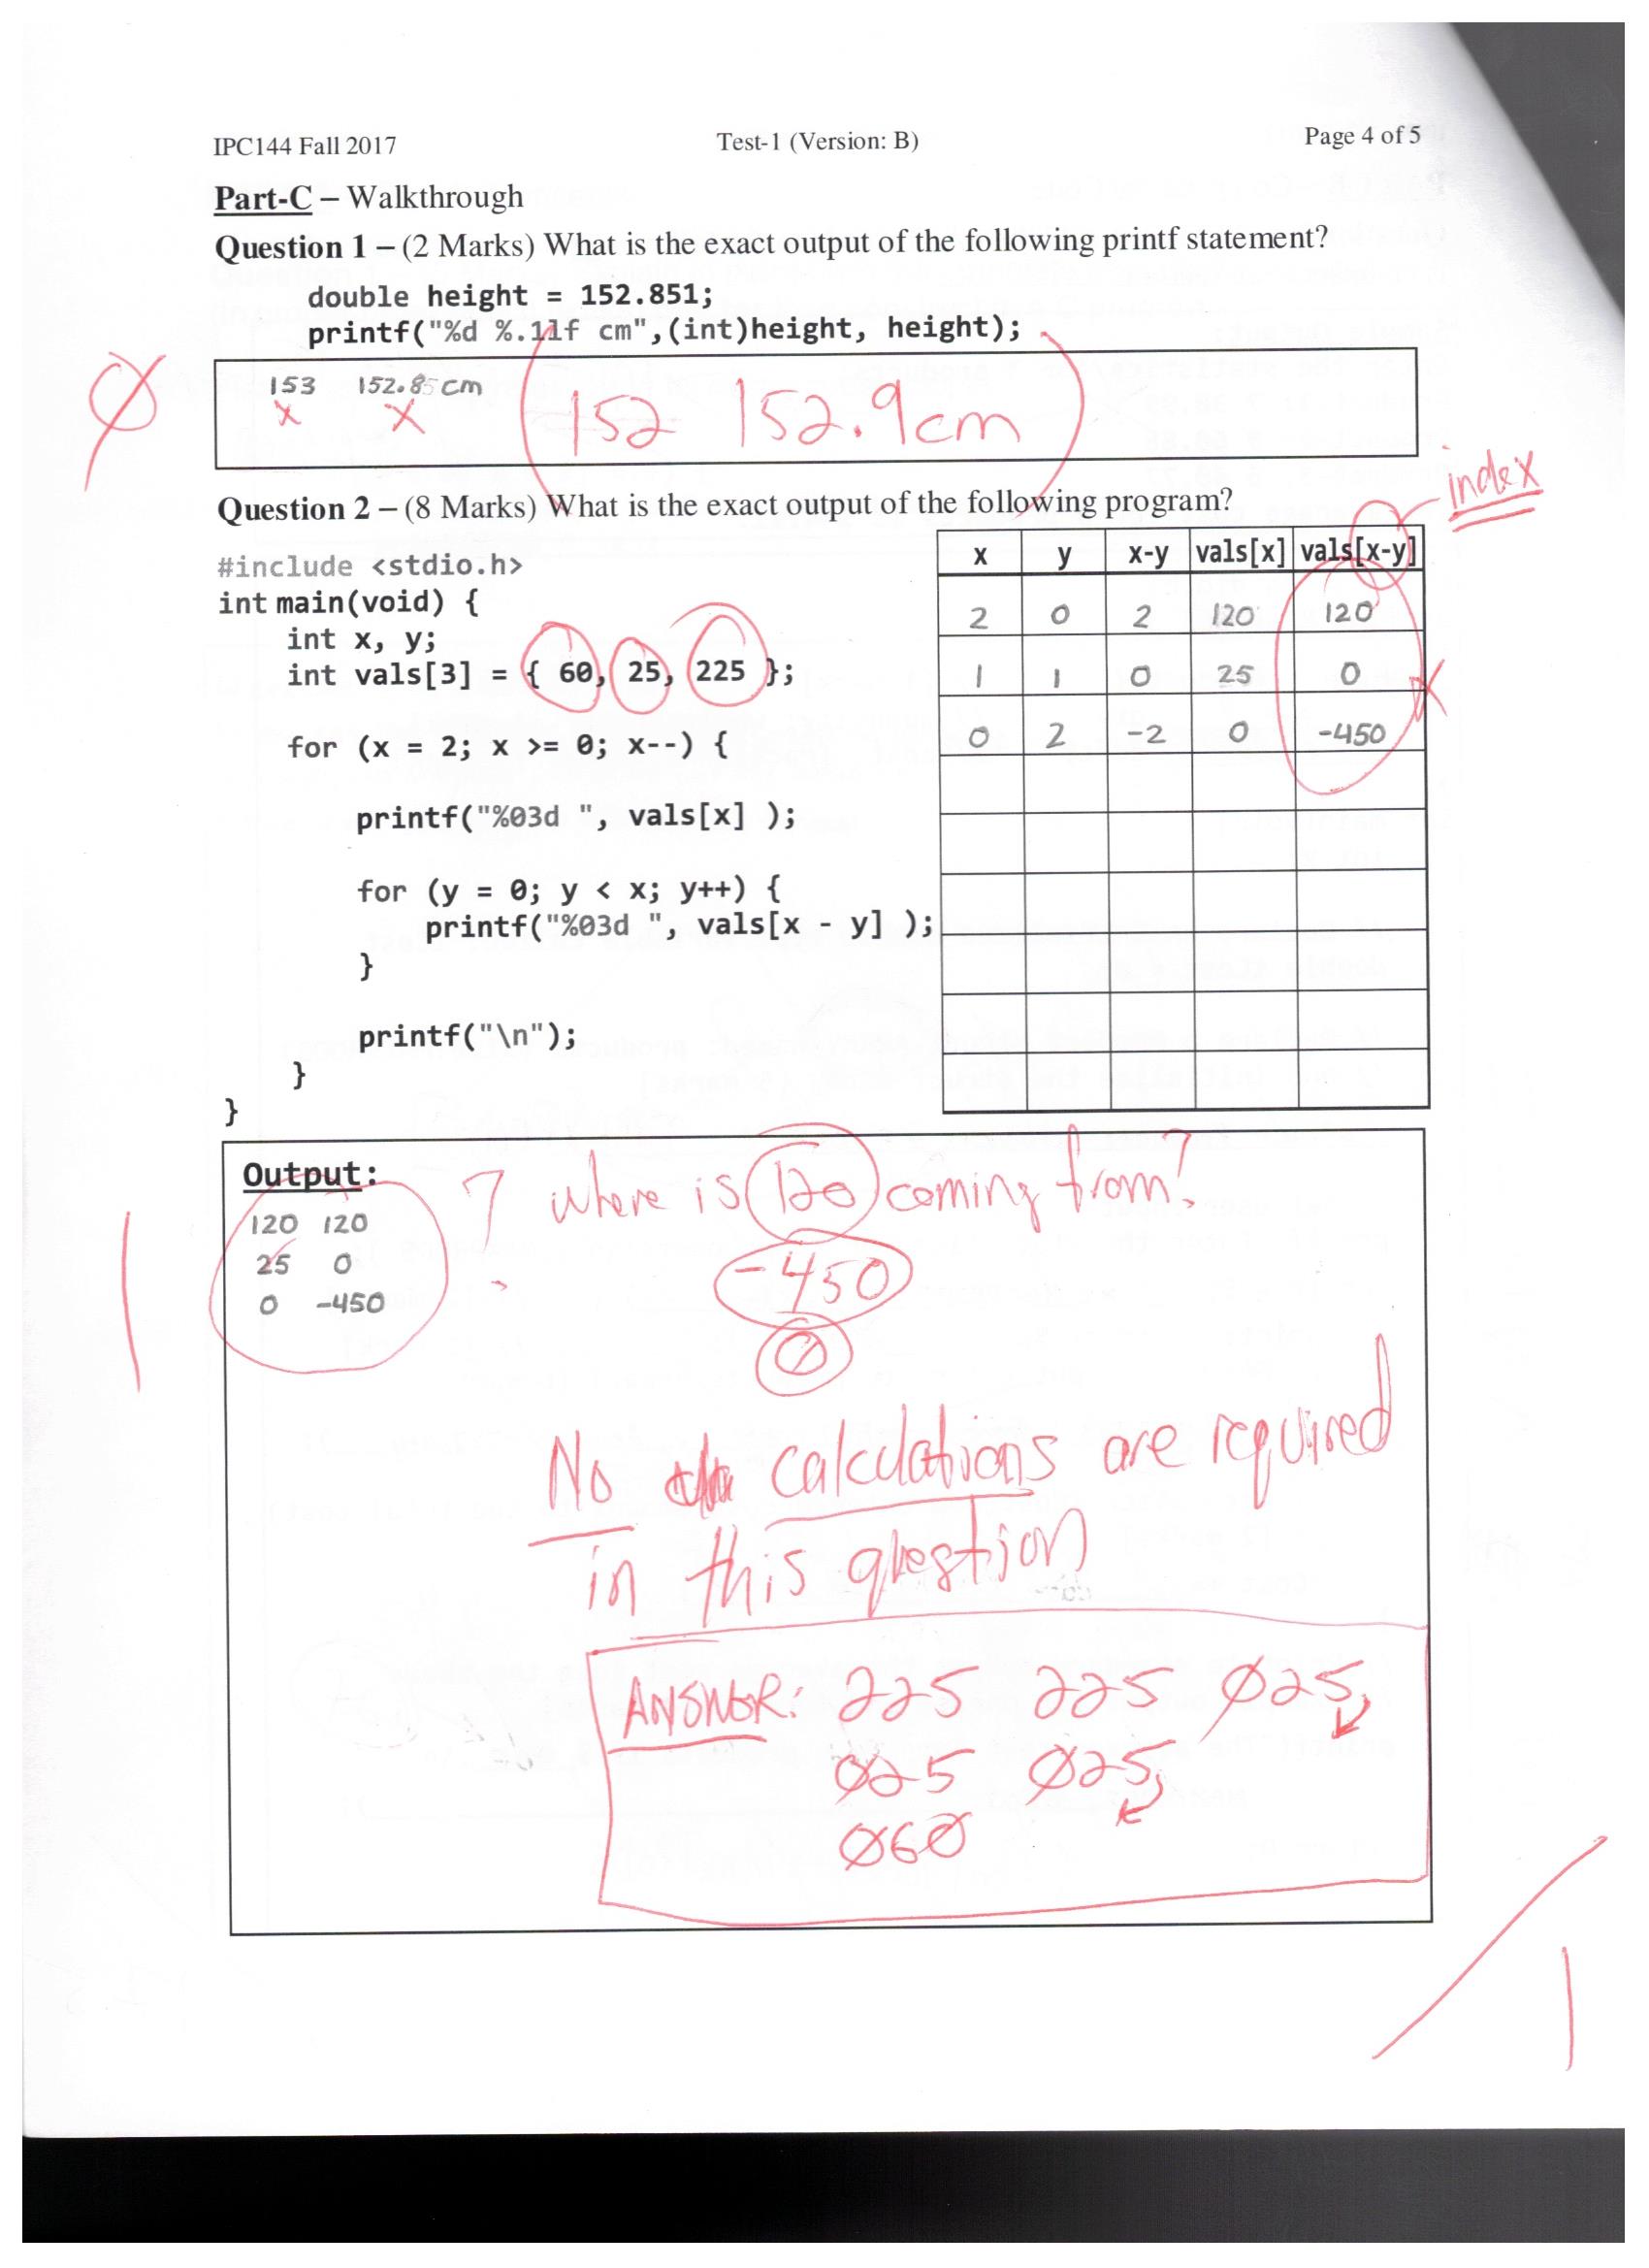 IPC144 Fall 2017 Test-1 (Version: B) Page 4 of 5
Part-C – Walkthrough
Question 1 – (2 Marks) What is the exact output of the following printf statement?
double height = 152.851;
printf("%d %.1lf cm",(int)height, height);
Ø
153 152.85 cm
x x
152 152.9cm
index
Question 2 – (8 Marks) What is the exact output of the following program?
x y x-y vals[x] vals[x-y]
2 0 2 120 120
1 1 0 25 0
x
0 2 -2 0 -450
#include <stdio.h>
int main(void) {
int x, y;
int vals[3] = { 60, 25, 225 };
for (x = 2; x >= 0; x--) {
printf("%03d ", vals[x] );
for (y = 0; y < x; y++) {
printf("%03d ", vals[x - y] );
}
printf("\n");
}
}
Output:
120 120
25 0
0 -450
? where is 120 coming from?
-450
0
No calculations are required
in this question
ANSWER: 225 225 Ø25,
Ø25 Ø25,
Ø6Ø
1